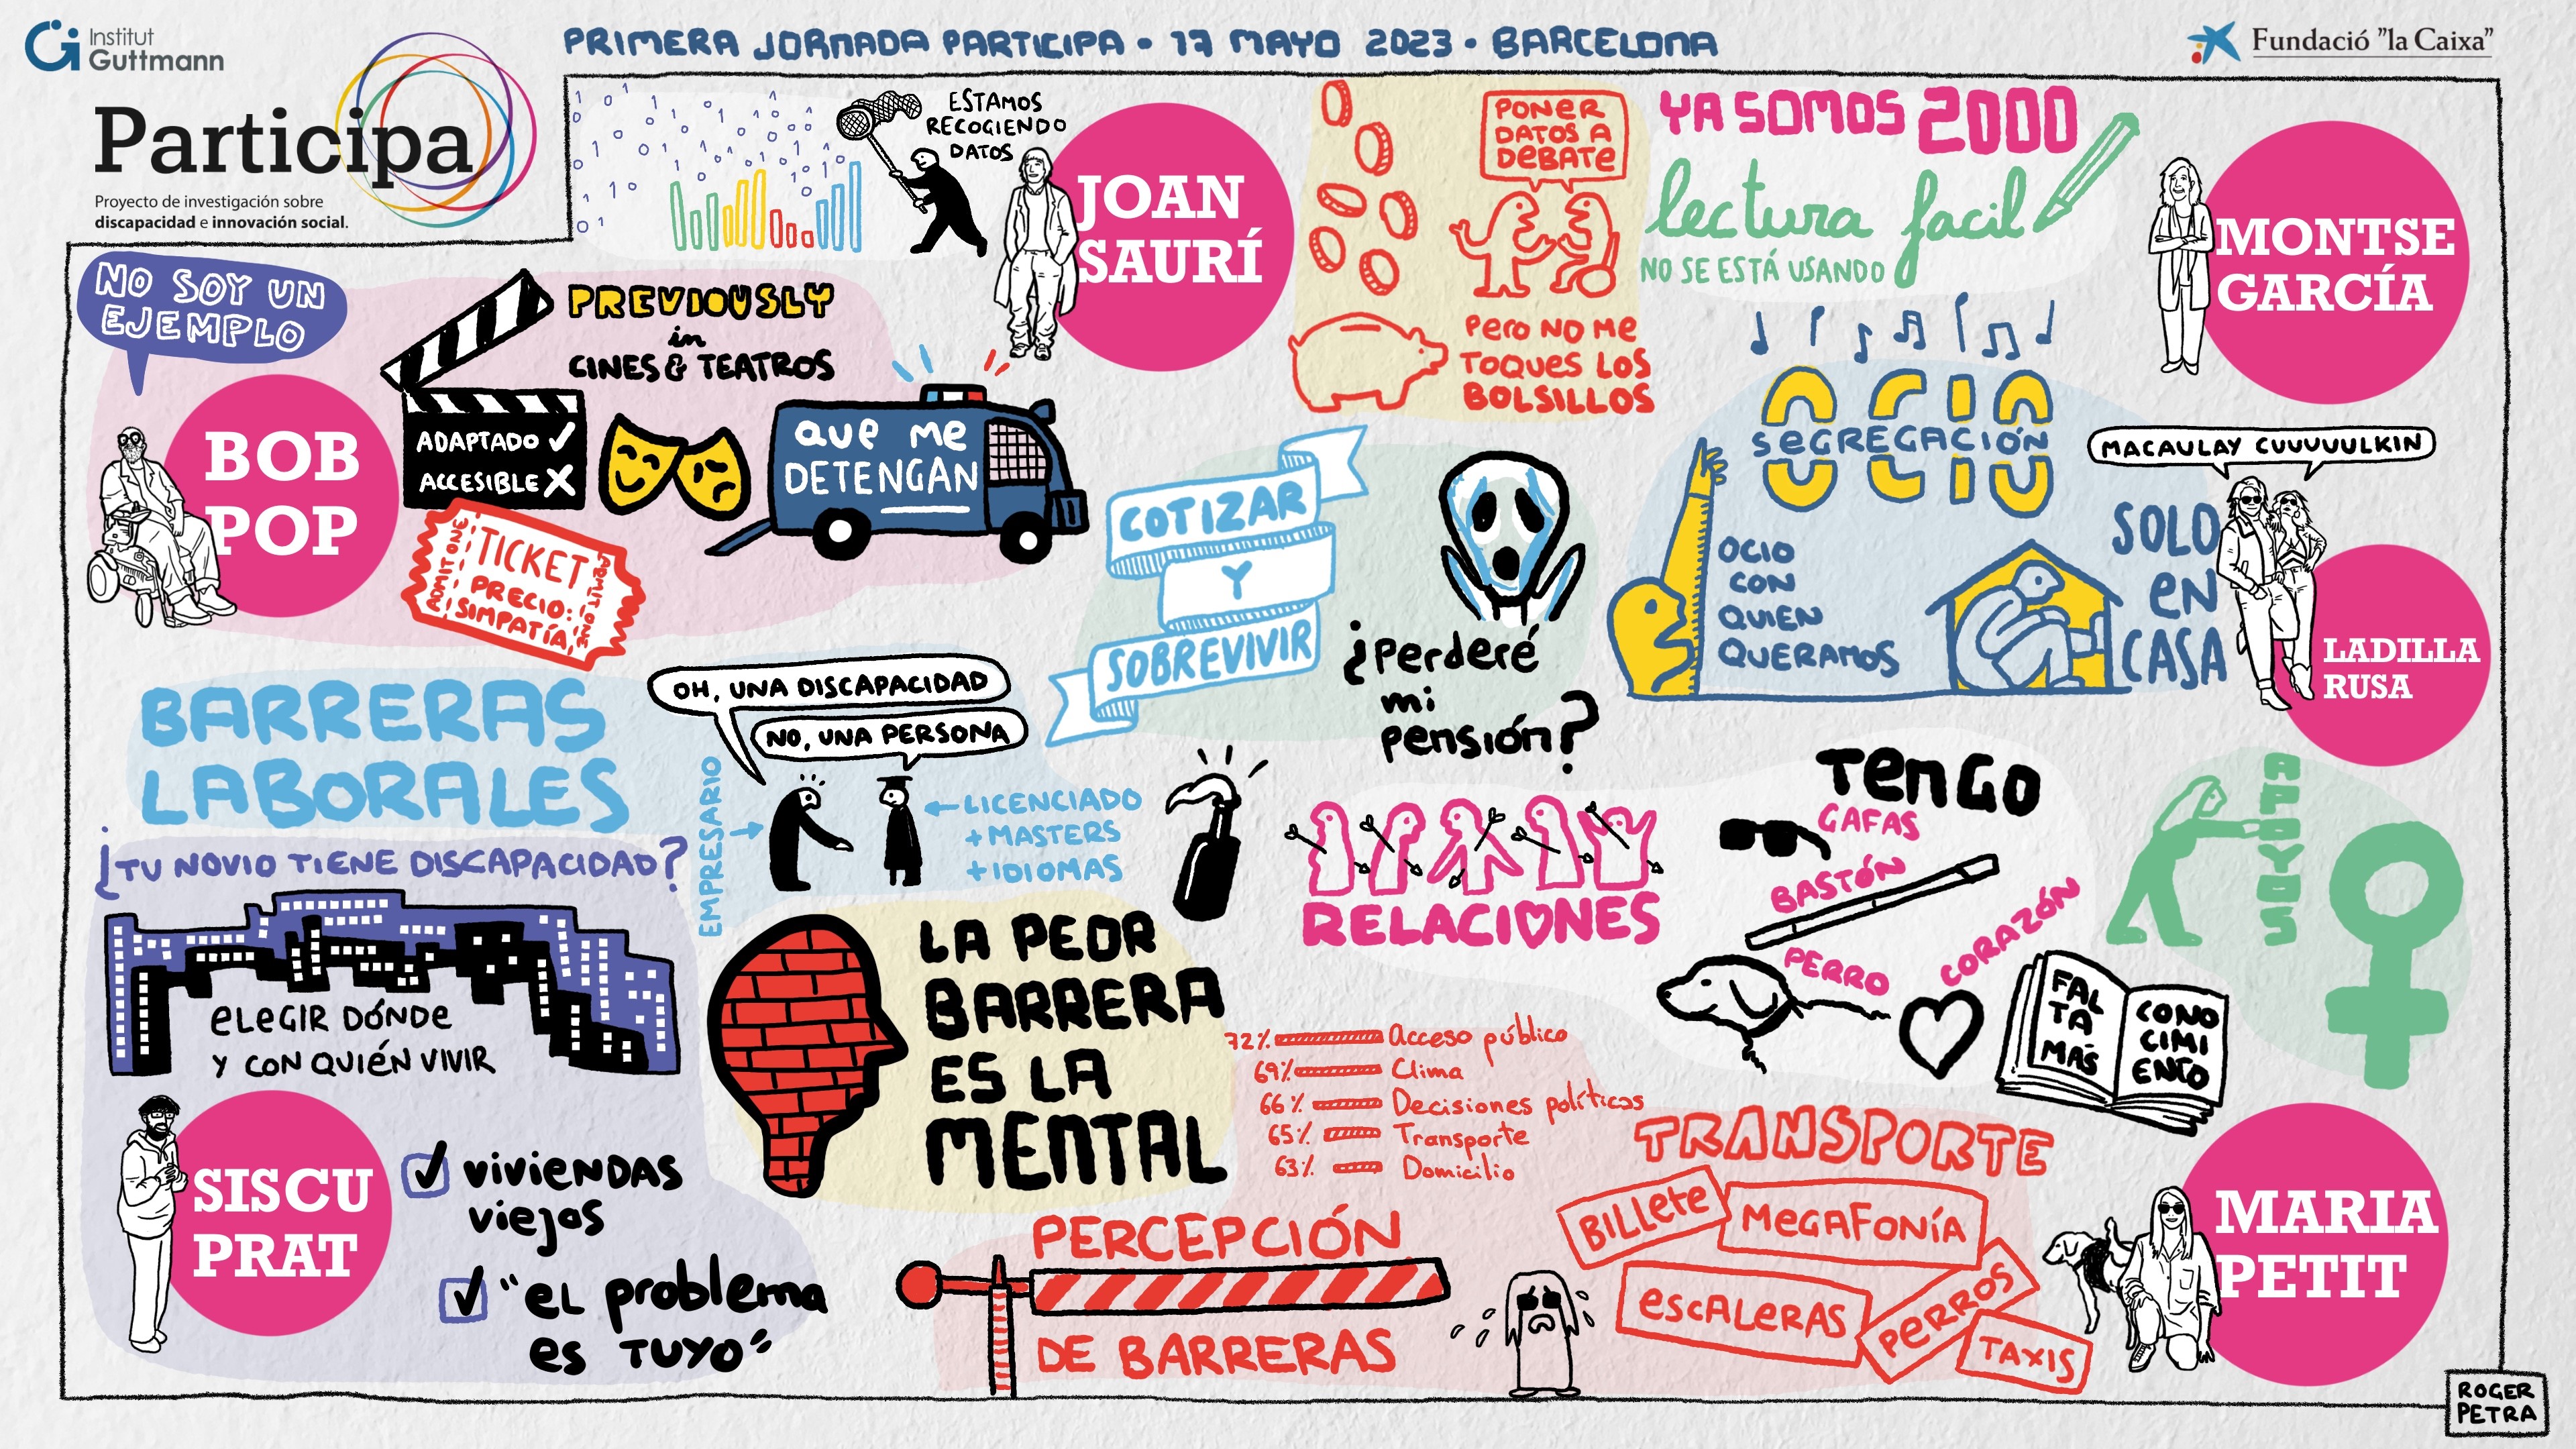 Institut
Guttmann
PRIMERA JORNADA PARTICIPA • 17 MAYO 2023 • BARCELONA
Fundació "la Caixa"
Participa
Proyecto de investigación sobre
discapacidad e innovación social.
ESTAMOS
RECOGIENDO
DATOS
JOAN
SAURÍ
PONER
DATOS A
DEBATE
PERO NO ME
TOQUES LOS
BOLSILLOS
YA SOMOS 2000
lectura facil
NO SE ESTÁ USANDO
MONTSE
GARCÍA
NO SOY UN
EJEMPLO
BOB
POP
PREVIOUSLY
in
CINES & TEATROS
ADAPTADO ✓
ACCESIBLE X
QUE ME
DETENGAN
ADMIT ONE
TICKET
PRECIO:
SIMPATÍA
ADMIT ONE
COTIZAR
Y
SOBREVIVIR
¿Perderé
mi
pensión?
OCIO
SEGREGACIÓN
OCIO
CON
QUIEN
QUERAMOS
SOLO
EN
CASA
MACAULAY CUUUUULKIN
LADILLA
RUSA
BARRERAS
LABORALES
OH, UNA DISCAPACIDAD
NO, UNA PERSONA
EMPRESARIO
LICENCIADO
+ MASTERS
+ IDIOMAS
¿TU NOVIO TIENE DISCAPACIDAD?
ELEGIR DÓNDE
Y CON QUIÉN VIVIR
SISCU
PRAT
VIVIENDAS
viejas
"EL problema
es TUYO"
LA PEOR
BARRERA
ES LA
MENTAL
RELACIONES
TENGO
GAFAS
BASTÓN
PERRO
CORAZÓN
FAL
TA
MÁS
CONO
CIMI
ENTO
APOYOS
72% Acceso público
69% Clima
66% Decisiones políticas
65% Transporte
63% Domicilio
PERCEPCIÓN
DE BARRERAS
TRANSPORTE
BILLETE
MEGAFONÍA
ESCALERAS
PERROS
TAXIS
MARIA
PETIT
ROGER
PETRA